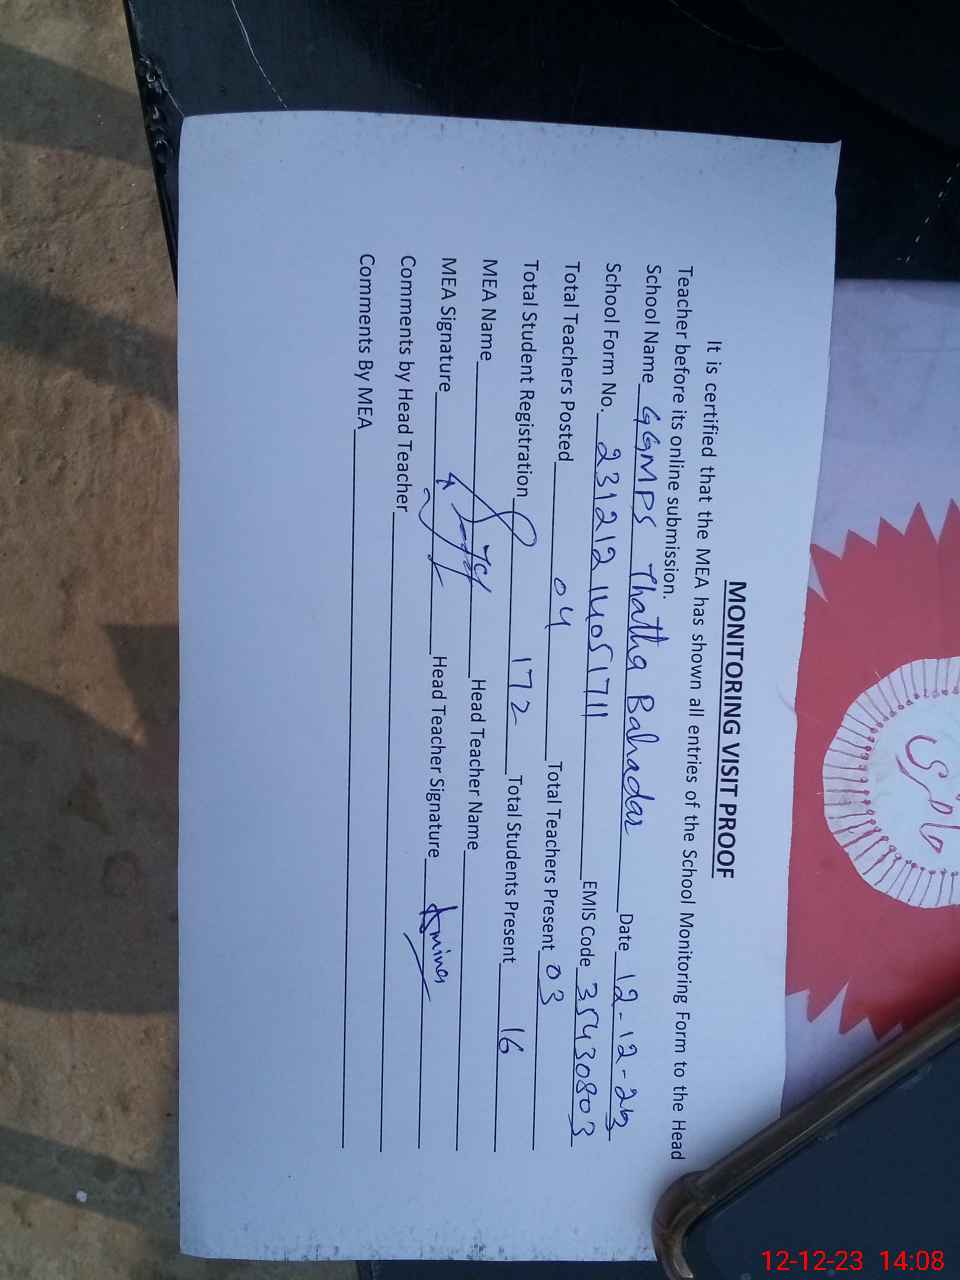 MONITORING VISIT PROOF
It is certified that the MEA has shown all entries of the School Monitoring Form to the Head
Teacher before its online submission.
School Name GGMPS Thatha Bahadar Date 12-12-23
School Form No. 23121214051711 EMIS Code 35430803
Total Teachers Posted 04 Total Teachers Present 03
Total Student Registration 172 Total Students Present 16
MEA Name Head Teacher Name
MEA Signature Head Teacher Signature Amina
Comments by Head Teacher
Comments By MEA
12-12-23 14:08